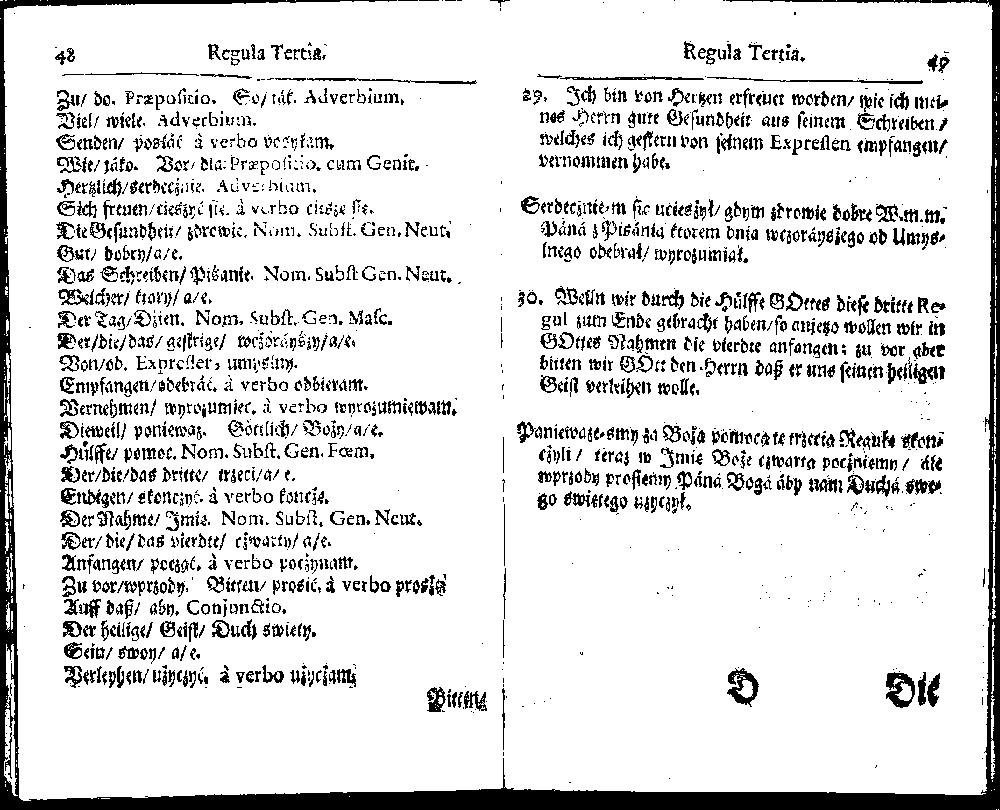 48 Regula Tertia.
Zu/ do. Præpositio. So/ ták. Adverbium.
Viel/ wiele. Adverbium.
Senden/ posłáć à verbo posyłam.
Wie/ jáko. Vor/ dla. Præpositio. cum Genit.
Hertzlich/ serdecżnie. Adverbium.
Sich freuen/ cieszyć się. à verbo cieszę się.
Die Gesundheit/ zdrowie. Nom. Subst. Gen. Neut.
Gut/ dobry/a/e.
Das Schreiben/ Pisanie. Nom. Subst Gen. Neut.
Welcher/ ktory/ a/e.
Der Tag/ Dźien. Nom. Subst. Gen. Masc.
Der/die/das/ gestrige/ wcżorayszy/a/e.
Von/od. Expresser, umyslny.
Empfangen/ odebráć. à verbo odbieram.
Vernehmen/ wyrozumiec. à verbo wyrozumiewam.
Dieweil/ poniewaz. Göttlich/ Boży/a/e.
Hülffe/ pomoc. Nom. Subst. Gen. Fœm.
Der/die/das dritte/ trzeci/a/e.
Endigen/ skonczyć. à verbo kończę.
Der Nahme/ Jmie. Nom. Subst. Gen. Neut.
Der/ die/ das vierdte/ cżwarty/ a/e.
Anfangen/ począć. à verbo pocżynam.
Zu vor/wprzody. Bitten/ prosić. à verbo proszę
Auff daß/ aby. Conjunctio.
Der heilige/ Geist/ Duch swiety.
Sein/ swoy/ a/e.
Verleyhen/ użyczyć. à verbo użyczam.
Bitten/
Regula Tertia. 49
29. Ich bin von Hertzen erfreuet worden/ wie ich mei-
nes Herrn gute Gesundheit aus seinem Schreiben/
welches ich gestern von seinem Expressen empfangen/
vernommen habe.
Serdecznie-m się ucieszył/ gdym zdrowie dobre W.m.m.
Páná z Pisánia ktorem dnia wczorayszego od Umys-
lnego odebrał/ wyrozumiał.
30. Weiln wir durch die Hülffe GOttes diese dritte Re-
gul zum Ende gebracht haben/ so anjetzo wollen wir in
GOttes Nahmen die vierdte anfangen; zu vor aber
bitten wir GOtt den Herrn daß er uns seinen heiligen
Geist verleihen wolle.
Poniewaze-smy za Boża pomocą te trzecia Regułe skon-
cżyli/ teraz w Jmie Boże czwarta poczniemy/ ale
wprzody prosiemy Páná Bogá áby nam Ducha swe-
go swietego użyczył.
D Die